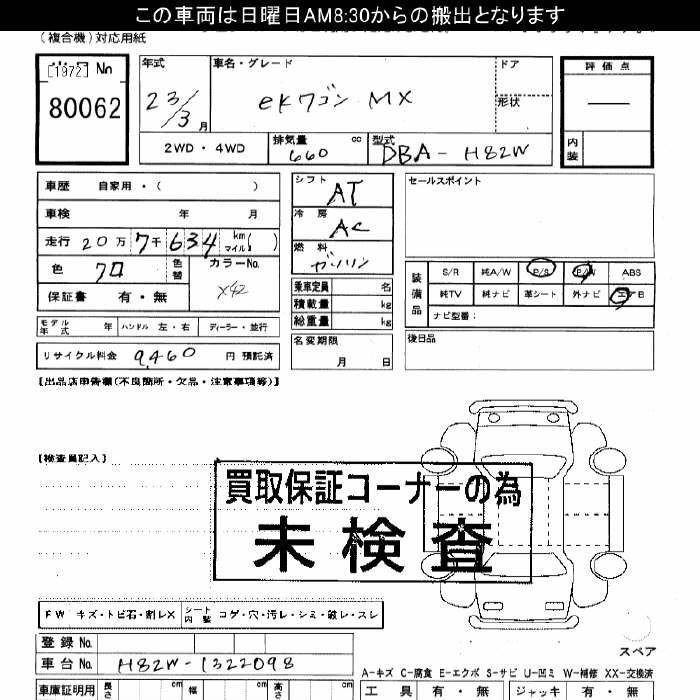 この車両は日曜日AM8:30からの搬出となります
(複合機)対応用紙
[1972] No
80062
年式 23/3 月
車名・グレード eKワゴン MX
ドア
形状
評価点
内装
2WD・4WD
排気量 660 cc
型式 DBA-H82W
車歴 自家用・( )
車検 年 月
走行 20万7千634 km マイル( )
色 クロ
色替
カラーNo. X42
保証書 有・無
モデル年式 年 ハンドル 左・右 ディーラー・並行
リサイクル料金 9,460 円 預託済
シフト AT
冷房 AC
燃料 ガソリン
乗車定員 名
積載量 kg
総重量 kg
名変期限 月 日
セールスポイント
装備品
S/R 純A/W P/S P/W ABS
純TV 純ナビ 革シート 外ナビ エアB
ナビ型番:
後日品
【出品店申告欄(不良箇所・欠品・注意事項等)】
【検査員記入】
買取保証コーナーの為
未検査
FW キズ・トビ石・割レX
シート内装 コゲ・穴・汚レ・シミ・破レ・スレ
登録No.
車台No. H82W-1322098
スペア
A-キズ C-腐食 E-エクボ S-サビ U-凹ミ W-補修 XX-交換済
車庫証明用 長さ cm 幅 cm 高さ cm
工具 有・無 ジャッキ 有・無